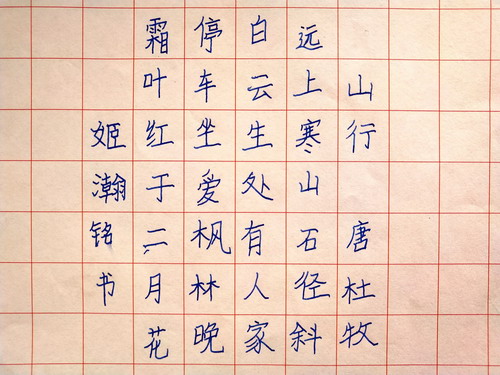 山行 唐 杜牧
远上寒山石径斜
白云生处有人家
停车坐爱枫林晚
霜叶红于二月花
姬瀚铭书